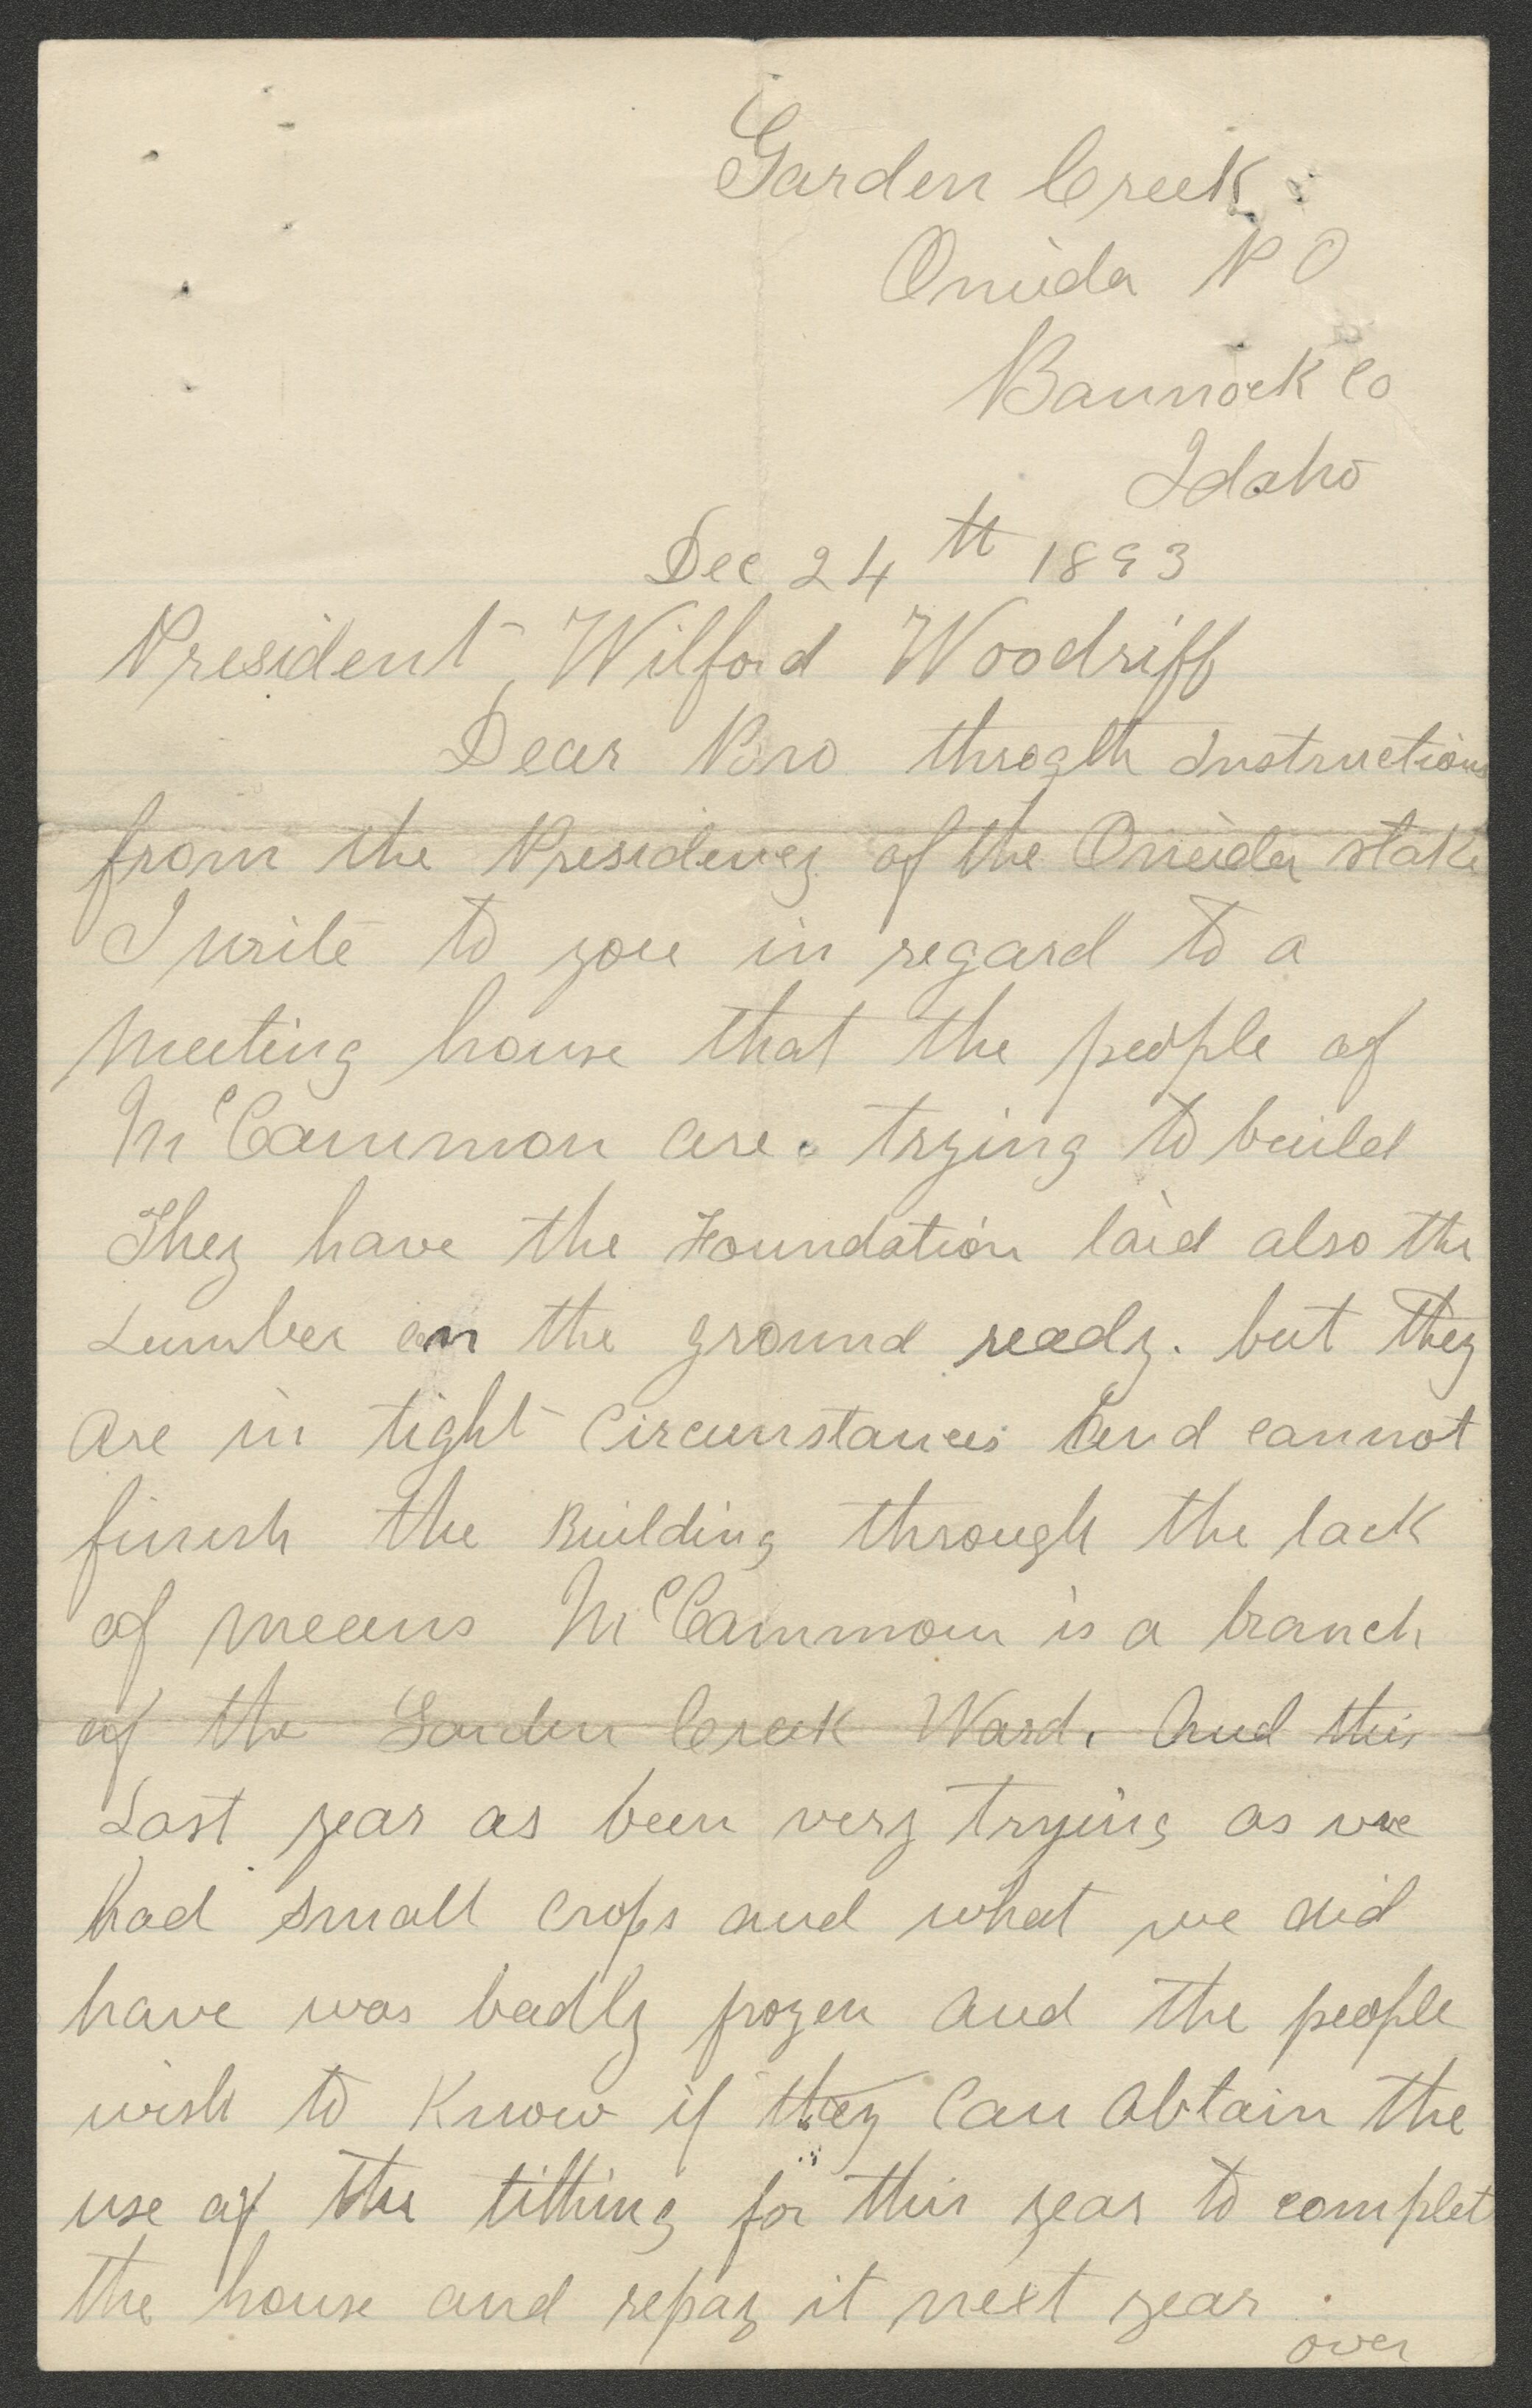 Garden Creek
Oneida P O
Bannock Co
Idaho
Dec 24th 1893
President Wilford Woodriff
Dear Bro throgth Instructions
from the Presidency of the Oneida stake
I write to you in regard to a
Meeting house that the people of
McCammon are trying to build
They have the Foundation laid also the
Lumber on the ground ready. but they
are in tight Circumstances and cannot
finish the Building through the lack
of means McCammon is a branch
of the Garden Creek Ward. And this
Last year as been very trying as we
had small crops and what we did
have was badly frozen and the people
wish to Know if they Can obtain the
use of the tithing for this year to complet
the house and repay it next year
over